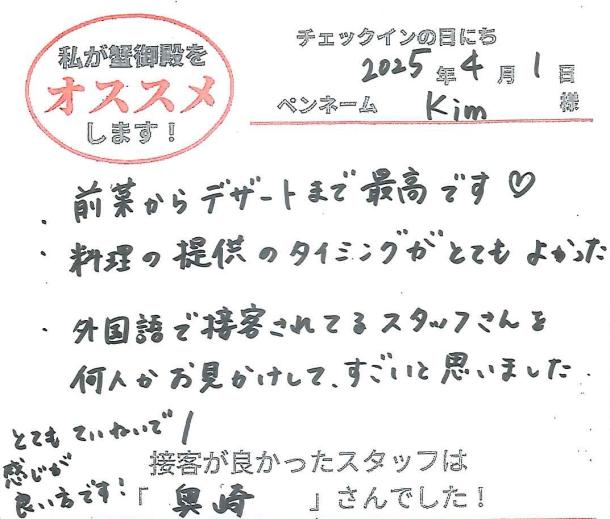 私が蟹御殿を
オススメ
します！
チェックインの日にち
2025年4月1日
ペンネーム Kim 様
・前菜からデザートまで最高です♡
・料理の提供のタイミングがとてもよかった
・外国語で接客されてるスタッフさんを
何人かお見かけして、すごいと思いました.
とてもていねいで
感じが
良い方です!
接客が良かったスタッフは
「奥崎」さんでした！